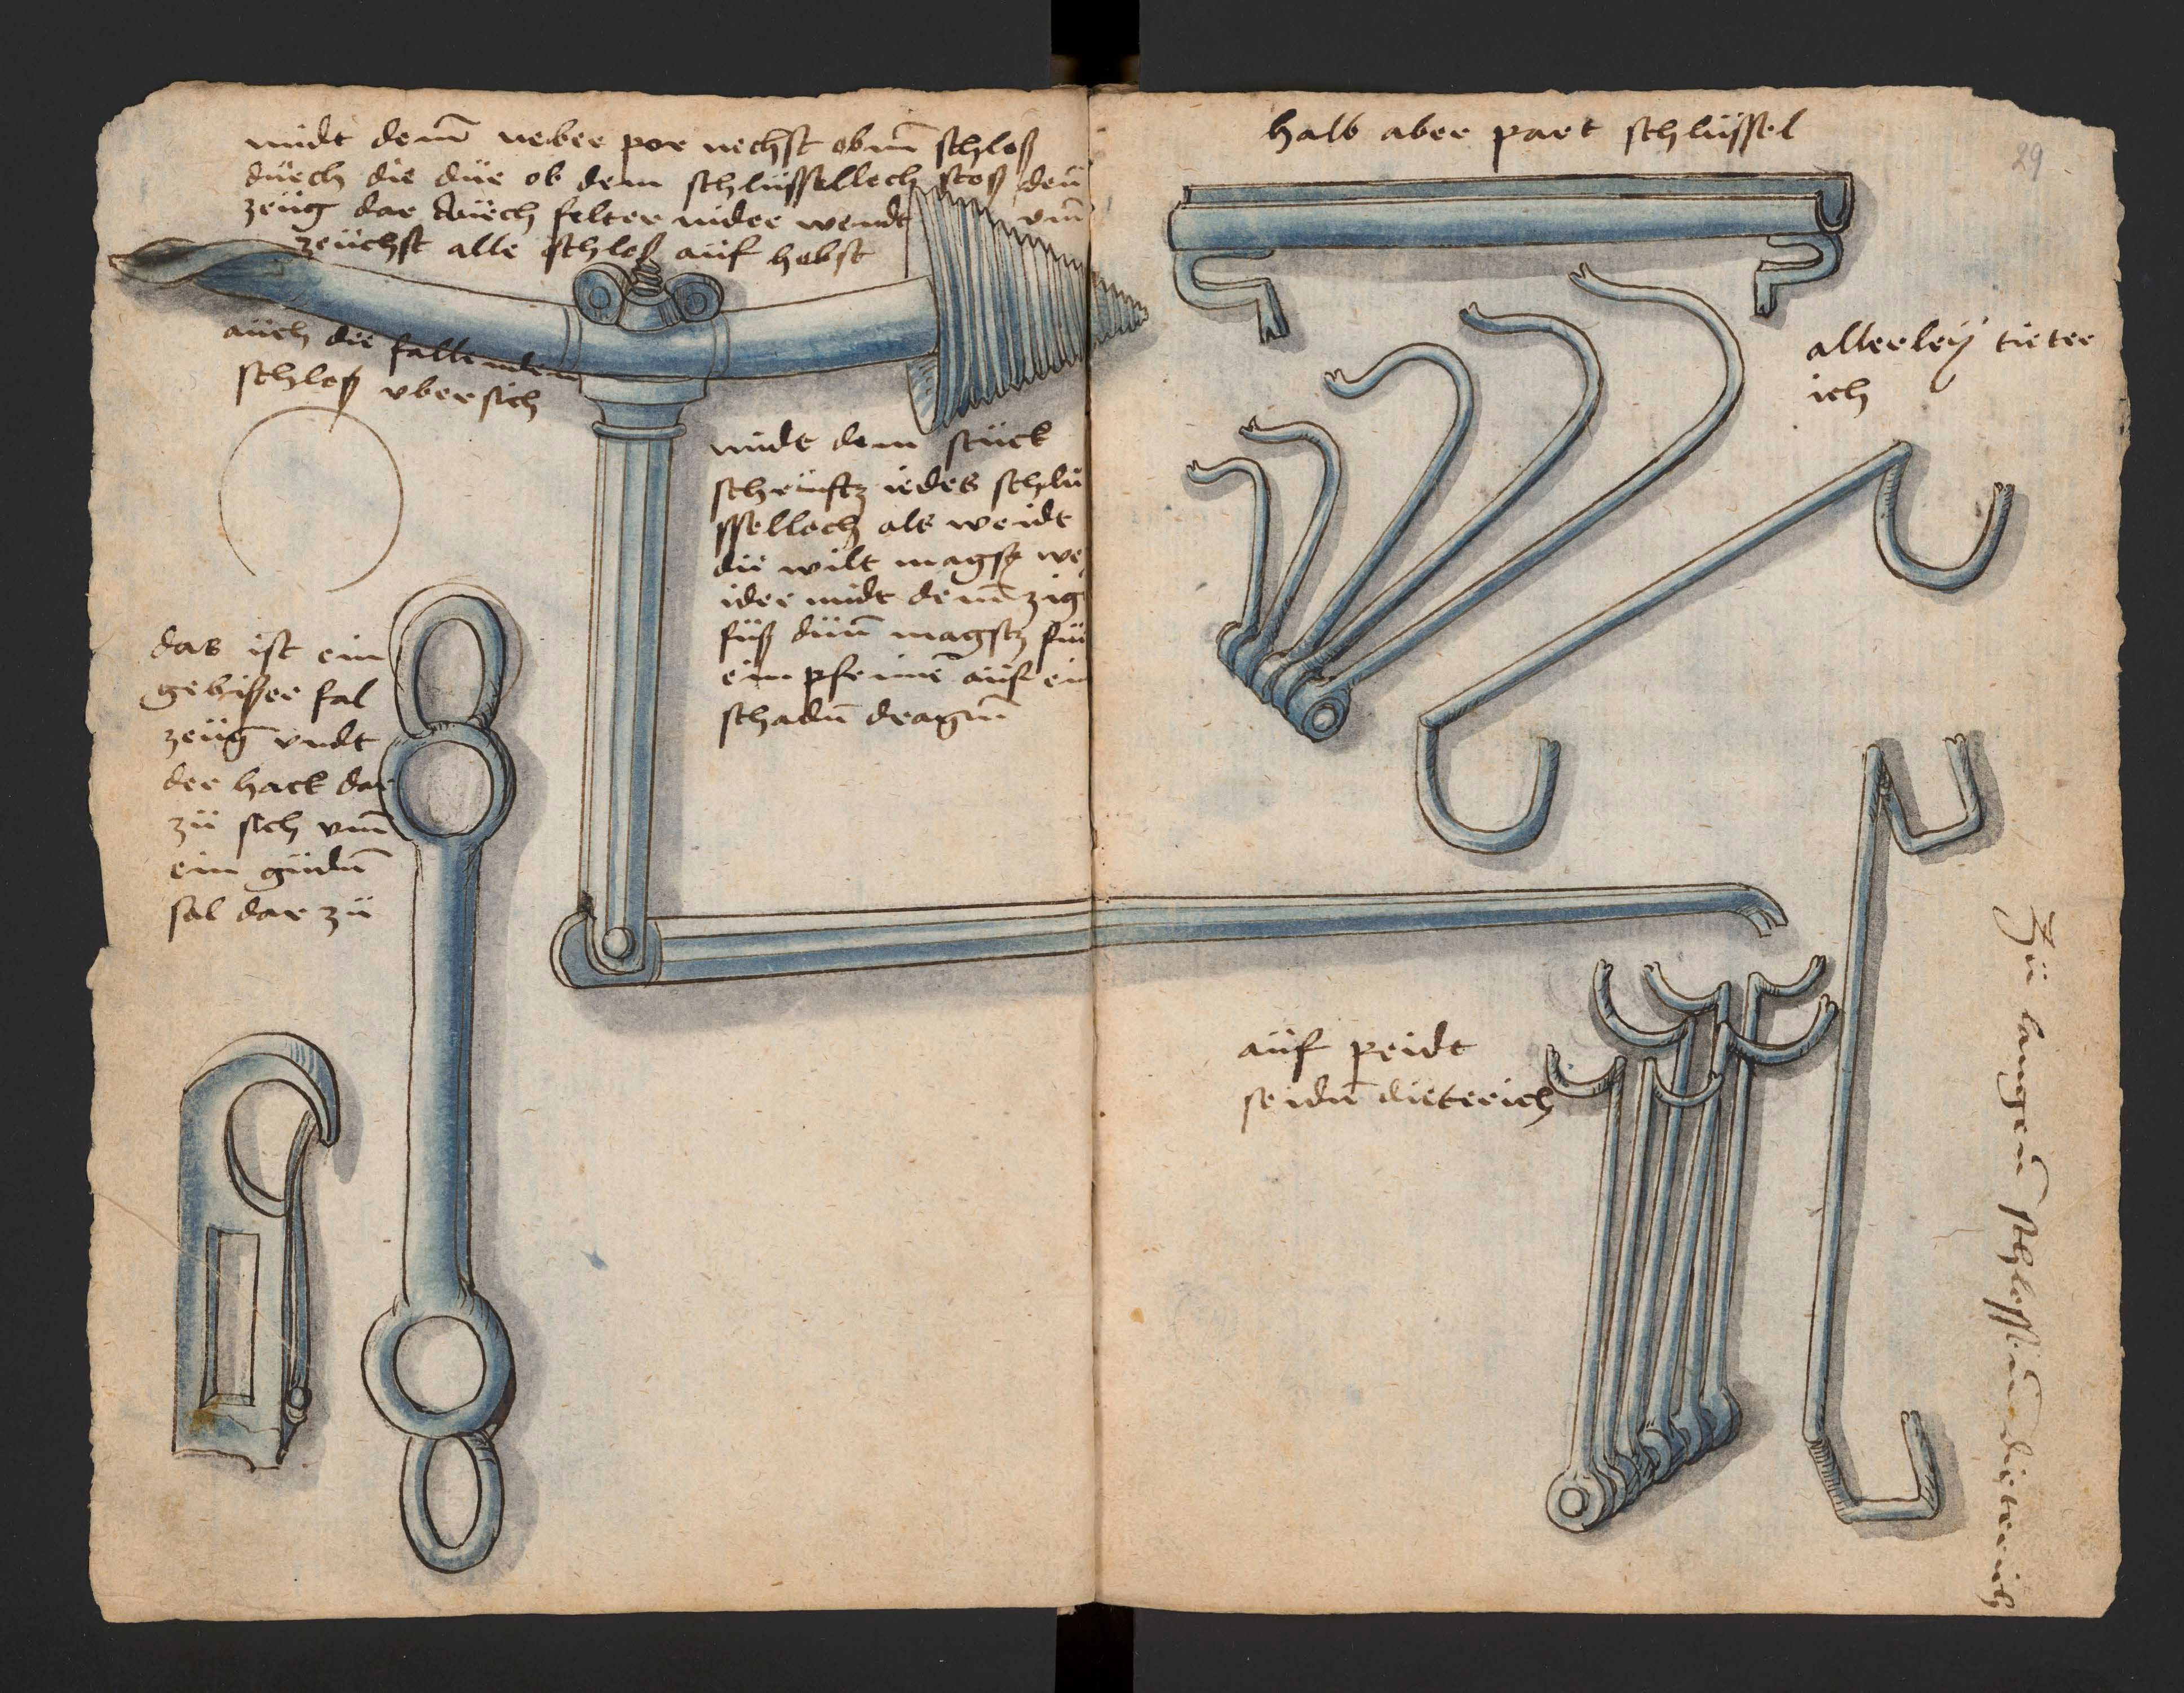 midt dem̄ neber por nechst obm̄ schloß
durch die düe ob dem schlüsselloch stoß den̄
zeüg dar durch felter nider wendt vm̄
zeüchst alle schloß auf hebst
auch die falln dem
schloß vbersich
midt dem stück
schrüfstz iedes schlü
sselloch als weidt
dü wilt magst we
ider midt dem̄ zig
füß dün̄ magstz für
ein pfrimē auf ein
schadn̄ dragn̄
das ist ein
gebißer fal
zeüg vndt
der hack dar
zü sich vm̄
ein gudn̄
sal dar zü
halb aber part schlüssel
29
allerleÿ tieter
ich
auf peidt
seidn̄ dieterich
Zü langen schlossn̄ dieterich